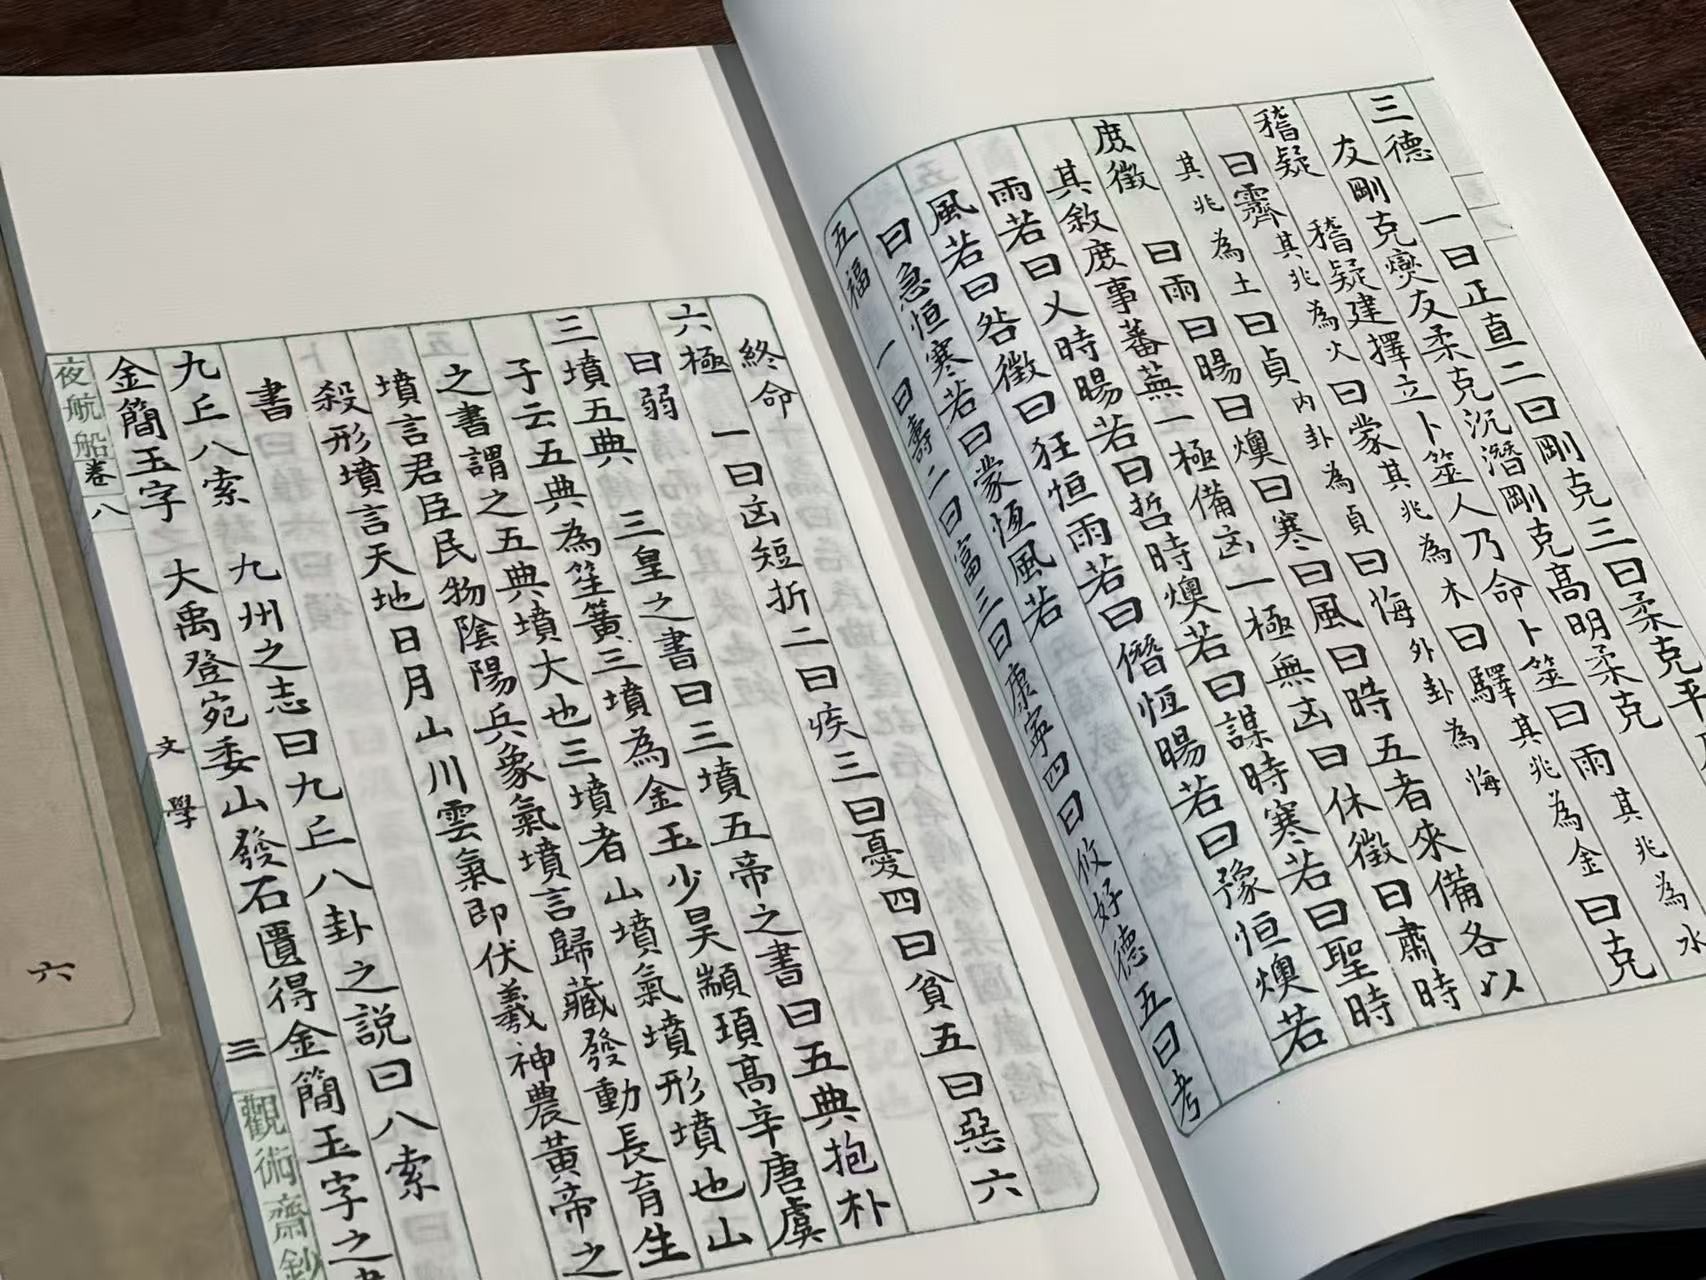 三德　一曰正直二曰剛克三曰柔克平
友剛克燮友柔克沉潛剛克高明柔克
稽疑　稽疑建擇立卜筮人乃命卜筮曰雨其兆為水
曰霽其兆為火曰蒙其兆為木曰驛其兆為金曰克
其兆為土曰貞內卦為貞曰悔外卦為悔
庶徵　曰雨曰暘曰燠曰寒曰風曰時五者來備各以
其敘庶事蕃蕪一極備凶一極無凶曰休徵曰肅時
雨若曰乂時暘若曰哲時燠若曰謀時寒若曰聖時
風若曰咎徵曰狂恒雨若曰僭恆暘若曰豫恒燠若
曰急恒寒若曰蒙恆風若
五福　一曰壽二曰富三曰康寧四曰攸好德五曰考
終命
六極　一曰凶短折二曰疾三曰憂四曰貧五曰惡六
曰弱
三墳五典　三皇之書曰三墳五帝之書曰五典抱朴
子云五典為笙簧三墳為金玉少昊顓頊高辛唐虞
之書謂之五典墳大也三墳者山墳氣墳形墳也山
墳言君臣民物陰陽兵象氣墳言歸藏發動長育生
殺形墳言天地日月山川雲氣即伏羲神農黃帝之
書
九丘八索　九州之志曰九丘八卦之說曰八索
金簡玉字　大禹登宛委山發石匱得金簡玉字之
夜航船卷八　文學　三　觀術齋鈔
六